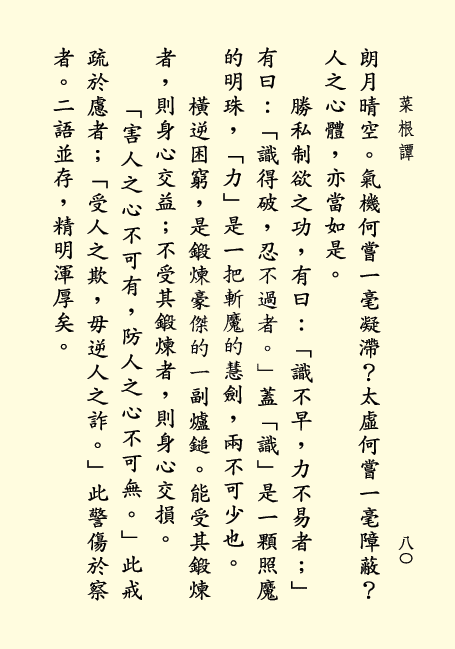 菜根譚
八〇
朗月晴空。氣機何嘗一毫凝滯？太虛何嘗一毫障蔽？
人之心體，亦當如是。
勝私制欲之功，有曰：「識不早，力不易者；」
有曰：「識得破，忍不過者。」蓋「識」是一顆照魔
的明珠，「力」是一把斬魔的慧劍，兩不可少也。
橫逆困窮，是鍛煉豪傑的一副爐鎚。能受其鍛煉
者，則身心交益；不受其鍛煉者，則身心交損。
「害人之心不可有，防人之心不可無。」此戒
疏於慮者；「受人之欺，毋逆人之詐。」此警傷於察
者。二語並存，精明渾厚矣。